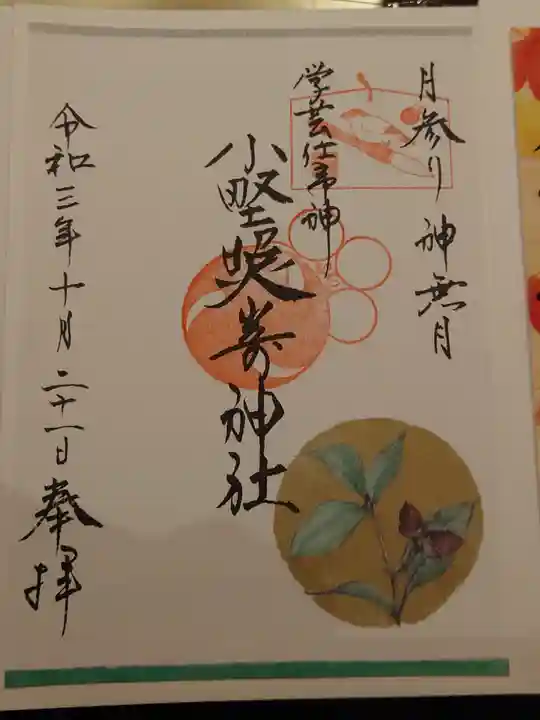 月参り 神無月
学芸仕事神
小野照崎神社
令和三年十月二十一日
奉拝